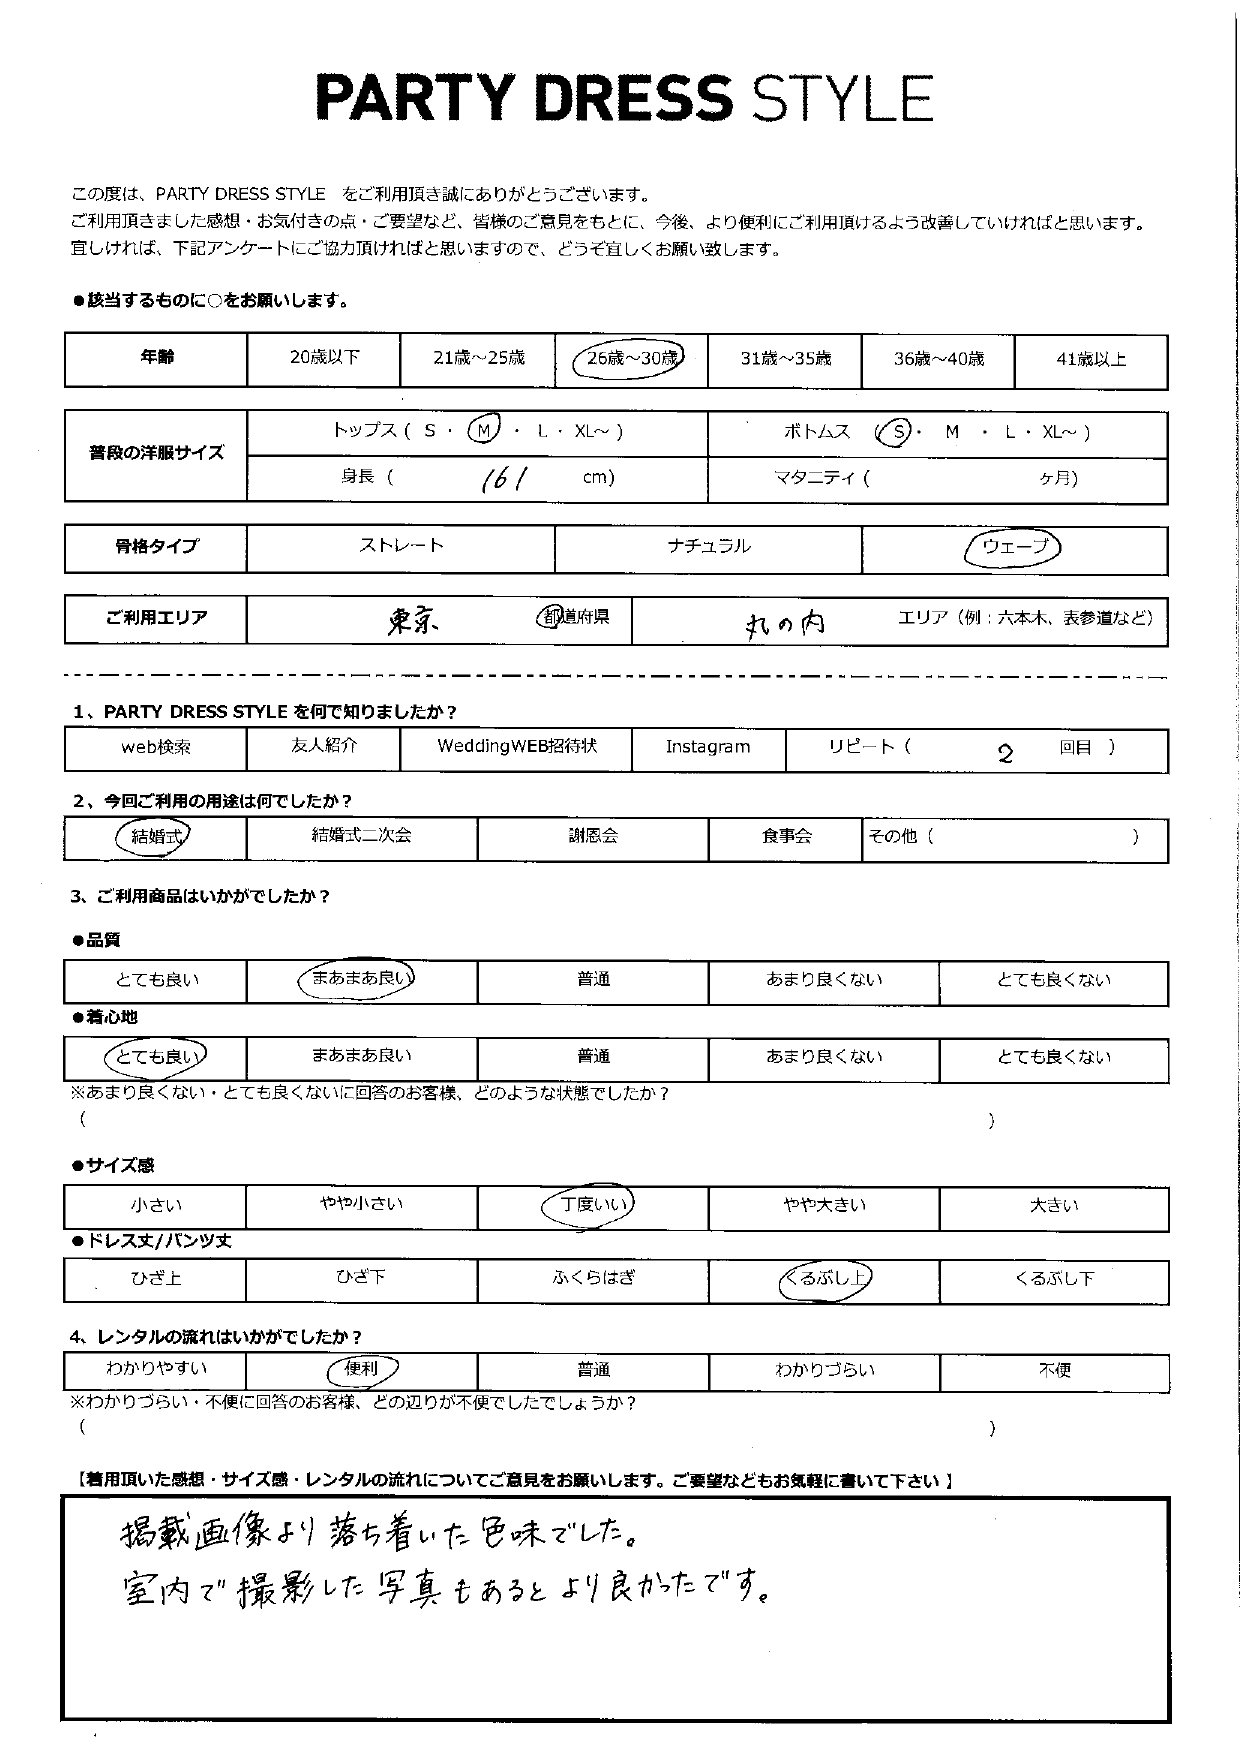 PARTY DRESS STYLE
この度は、PARTY DRESS STYLE をご利用頂き誠にありがとうございます。
ご利用頂きました感想・お気付きの点・ご要望など、皆様のご意見をもとに、今後、より便利にご利用頂けるよう改善していければと思います。
宜しければ、下記アンケートにご協力頂ければと思いますので、どうぞ宜しくお願い致します。
●該当するものに○をお願いします。
年齢 20歳以下 21歳～25歳 26歳～30歳 31歳～35歳 36歳～40歳 41歳以上
普段の洋服サイズ トップス ( S ・ M ・ L ・ XL～ ) ボトムス ( S ・ M ・ L ・ XL～ )
身長 ( 161 cm) マタニティ ( ヶ月)
骨格タイプ ストレート ナチュラル ウェーブ
ご利用エリア 東京 都道府県 丸の内 エリア（例：六本木、表参道など）
1、PARTY DRESS STYLE を何で知りましたか？
web検索 友人紹介 WeddingWEB招待状 Instagram リピート ( 2 回目 )
2、今回ご利用の用途は何でしたか？
結婚式 結婚式二次会 謝恩会 食事会 その他 ( )
3、ご利用商品はいかがでしたか？
●品質
とても良い まあまあ良い 普通 あまり良くない とても良くない
●着心地
とても良い まあまあ良い 普通 あまり良くない とても良くない
※あまり良くない・とても良くないに回答のお客様、どのような状態でしたか？
( )
●サイズ感
小さい やや小さい 丁度いい やや大きい 大きい
●ドレス丈/パンツ丈
ひざ上 ひざ下 ふくらはぎ くるぶし上 くるぶし下
4、レンタルの流れはいかがでしたか？
わかりやすい 便利 普通 わかりづらい 不便
※わかりづらい・不便に回答のお客様、どの辺りが不便でしたでしょうか？
( )
【着用頂いた感想・サイズ感・レンタルの流れについてご意見をお願いします。ご要望などもお気軽に書いて下さい 】
掲載画像より落ち着いた色味でした。
室内で撮影した写真もあるとより良かったです。